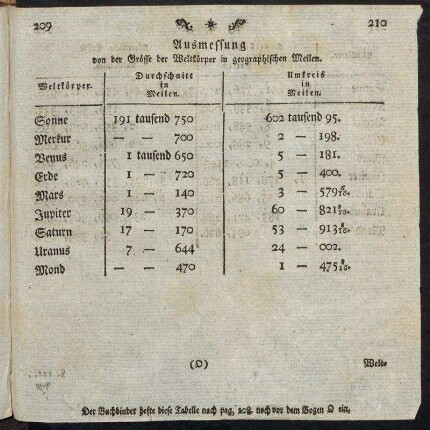 209 210
Ausmessung
von der Grösse der Weltkörper in geographischen Meilen.
Weltkörper. Durchschnitt in Meilen. Umkreis in Meilen.
Sonne 191 tausend 750 602 tausend 95.
Merkur — — 700 2 — 198.
Venus 1 tausend 650 5 — 181.
Erde 1 — 720 5 — 400.
Mars 1 — 140 3 — 579
Jupiter 19 — 370 60 — 821
Saturn 17 — 170 53 — 913
Uranus 7 — 644 24 — 002.
Mond — — 470 1 — 475
(O) Welt-
Der Buchbinder hefte diese Tabelle nach pag. 208. noch vor dem Bogen O ein.